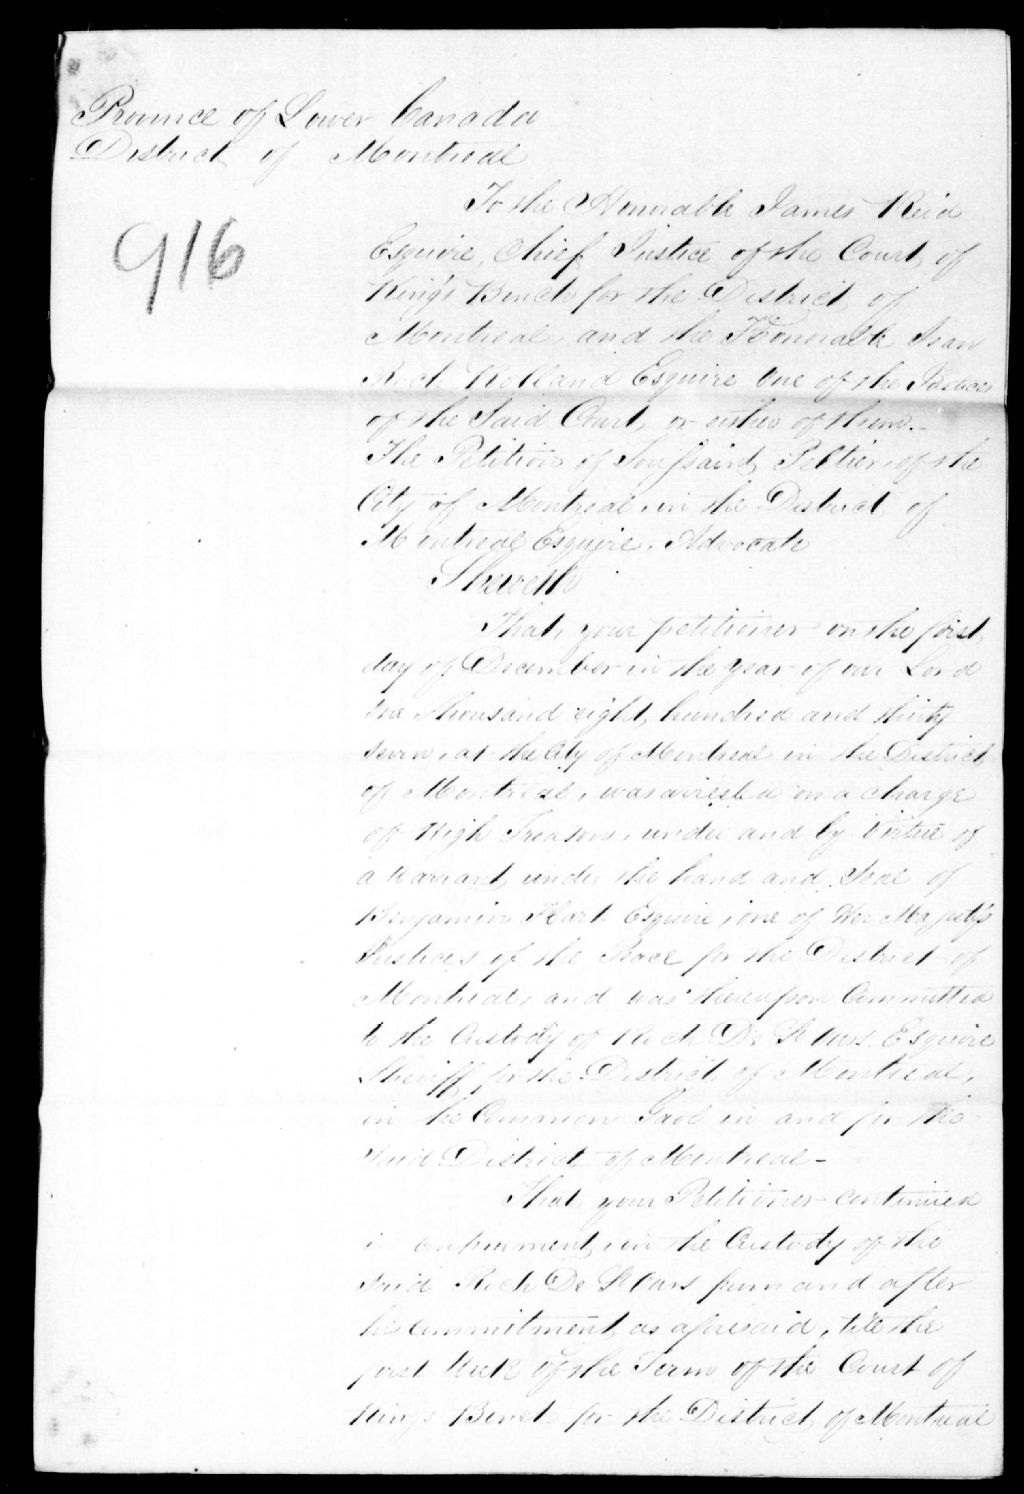 Province of Lower Canada
District of Montreal
916
To the Honorable James Reid
Esquire, Chief Justice of the Court of
King's Bench for the District of
Montreal and the Honorable Jean
Roch Rolland Esquire One of the Justices
of the Said Court or either of them.
The Petition of Toussaint Peltier, of the
City of Montreal, in the District of
Montreal Esquire, Advocate
Sheweth
That, your petitioner on the first
day of December in the year of our Lord
One thousand eight hundred and thirty
seven, at the City of Montreal in the District
of Montreal, was arrested on a charge
of High Treason, under and by Virtue of
a Warrant under the hand and Seal of
Benjamin Hart Esquire, one of Her Majesty's
Justices of the Peace for the District of
Montreal, and was thereupon Committed
to the Custody of Roch De St Ours Esquire
Sheriff for the District of Montreal,
in the Common Gaol in and for the
Said District of Montreal -
That your Petitioner continued
in confinement, in the Custody of the
Said Roch De St Ours from and after
his Commitment as aforesaid, till the
first Week of the Term of the Court of
King's Bench for the District of Montreal